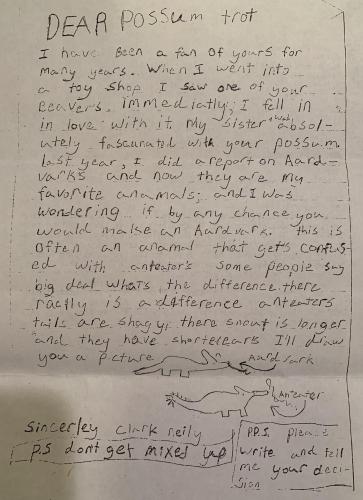 DEAR POSSUM trot
I have been a fan of yours for
many years. When I went into
a toy shop I saw one of your
Beavers. immediatly; I fell in
in love with it. My sister was absol-
utely fascunated with your possum
last year, I did a report on Aard-
varks and now they are my
favorite anamals; and I was
wondering if by any chance you
would make an Aardvark. this is
often an anamal that gets confus-
ed with anteator's some people say
big deal whats the difference. there
raelly is a difference anteaters
tails are shagy, there snout is longer
and they have shorter ears I'll draw
you a picture
Aardvark
Anteater
Sincerley clark neily
P.S dont get mixed up
P.P.S. please
write and tell
me your deci-
sion